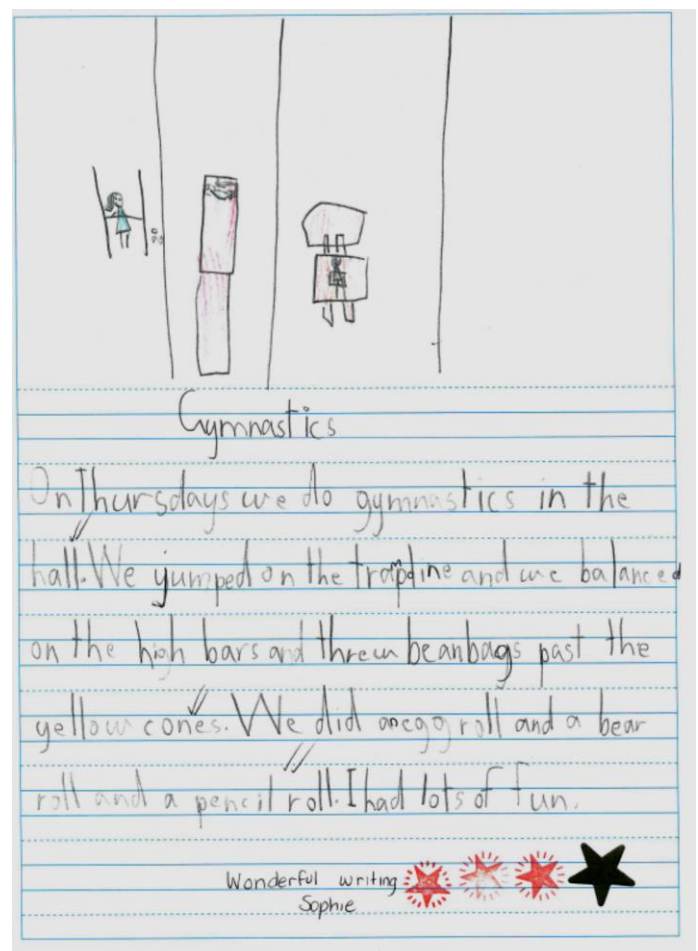 Gymnastics
On Thursdays we do gymnastics in the
hall. We jumped on the trampoline and we balanced
on the high bars and threw beanbags past the
yellow cones. We did an egg roll and a bear
roll and a pencil roll. I had lots of fun.
Wonderful writing
Sophie